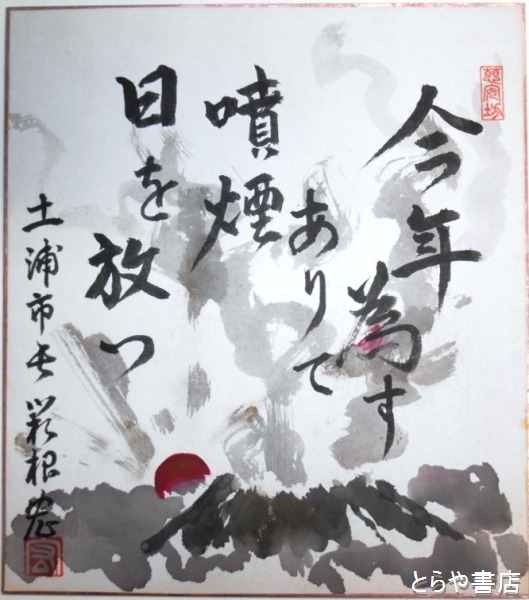 今年為す
ありて
噴煙
日を放つ
土浦市長 箱根宏
とらや書店